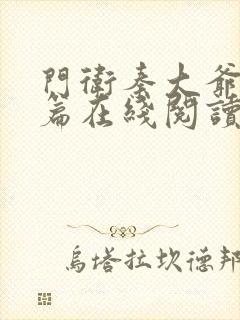 門衛秦大爺
篇在綫閱讀
烏塔拉坎德邦